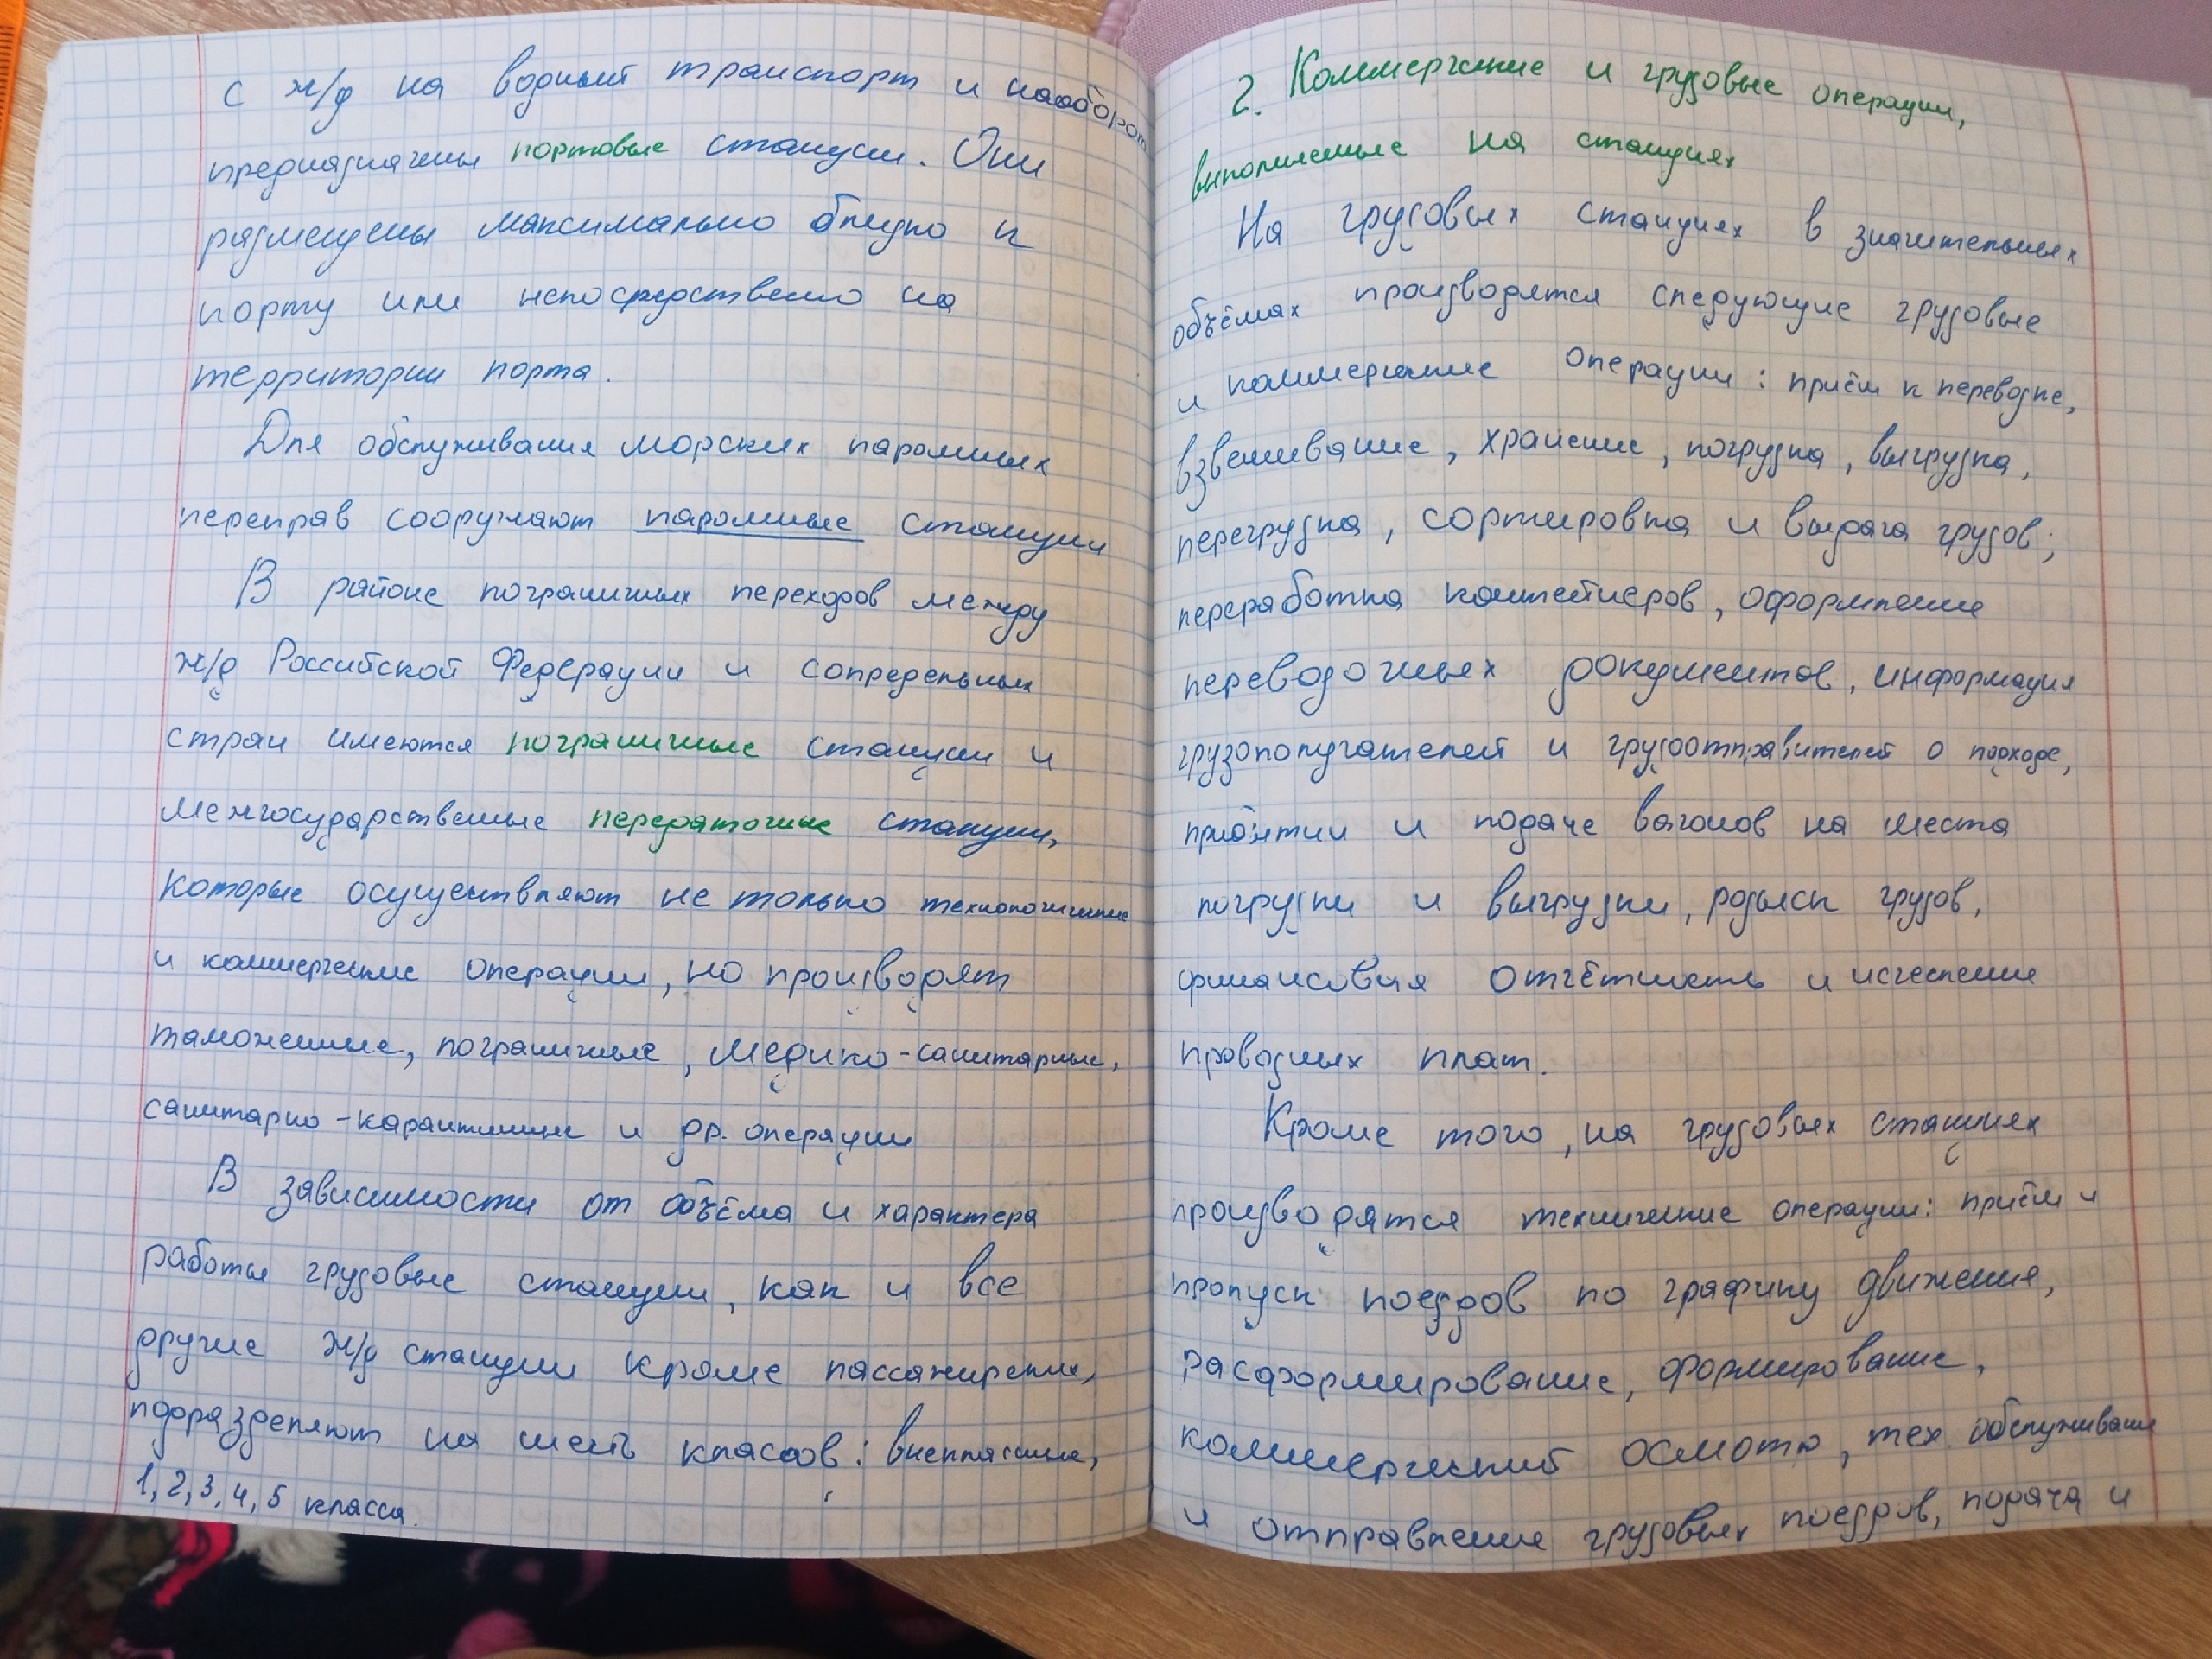 с ж/д на водный транспорт и наоборот
предназначены портовые станции. Они
размещены максимально близко к
порту или непосредственно на
территории порта.
Для обслуживания морских паромных
переправ сооружают паромные станции
В районе пограничных переходов между
ж/д Российской Федерации и сопредельных
стран имеются пограничные станции и
межгосударственные передаточные станции,
которые осуществляют не только технологические
и коммерческие операции, но производят
таможенные, пограничные, медико-санитарные,
санитарно-карантинные и др. операции
В зависимости от объёма и характера
работы грузовые станции, как и все
другие ж/д станции кроме пассажирских,
подразделяют на шесть классов: внеклассные,
1, 2, 3, 4, 5 класса.
2. Коммерческие и грузовые операции,
выполняемые на станциях
На грузовых станциях в значительных
объёмах производятся следующие грузовые
и коммерческие операции: приём к перевозке,
взвешивание, хранение, погрузка, выгрузка,
перегрузка, сортировка и выдача грузов;
переработка контейнеров, оформление
перевозочных документов, информация
грузополучателей и грузоотправителей о подходе,
прибытии и подаче вагонов на места
погрузки и выгрузки, розыск грузов,
финансовая отчётность и исчесление
провозных плат.
Кроме того, на грузовых станциях
производятся технические операции: приём и
пропуск поездов по графику движения,
расформирование, формирование,
коммерческий осмотр, тех. обслуживание
и отправление грузовых поездов, подача и